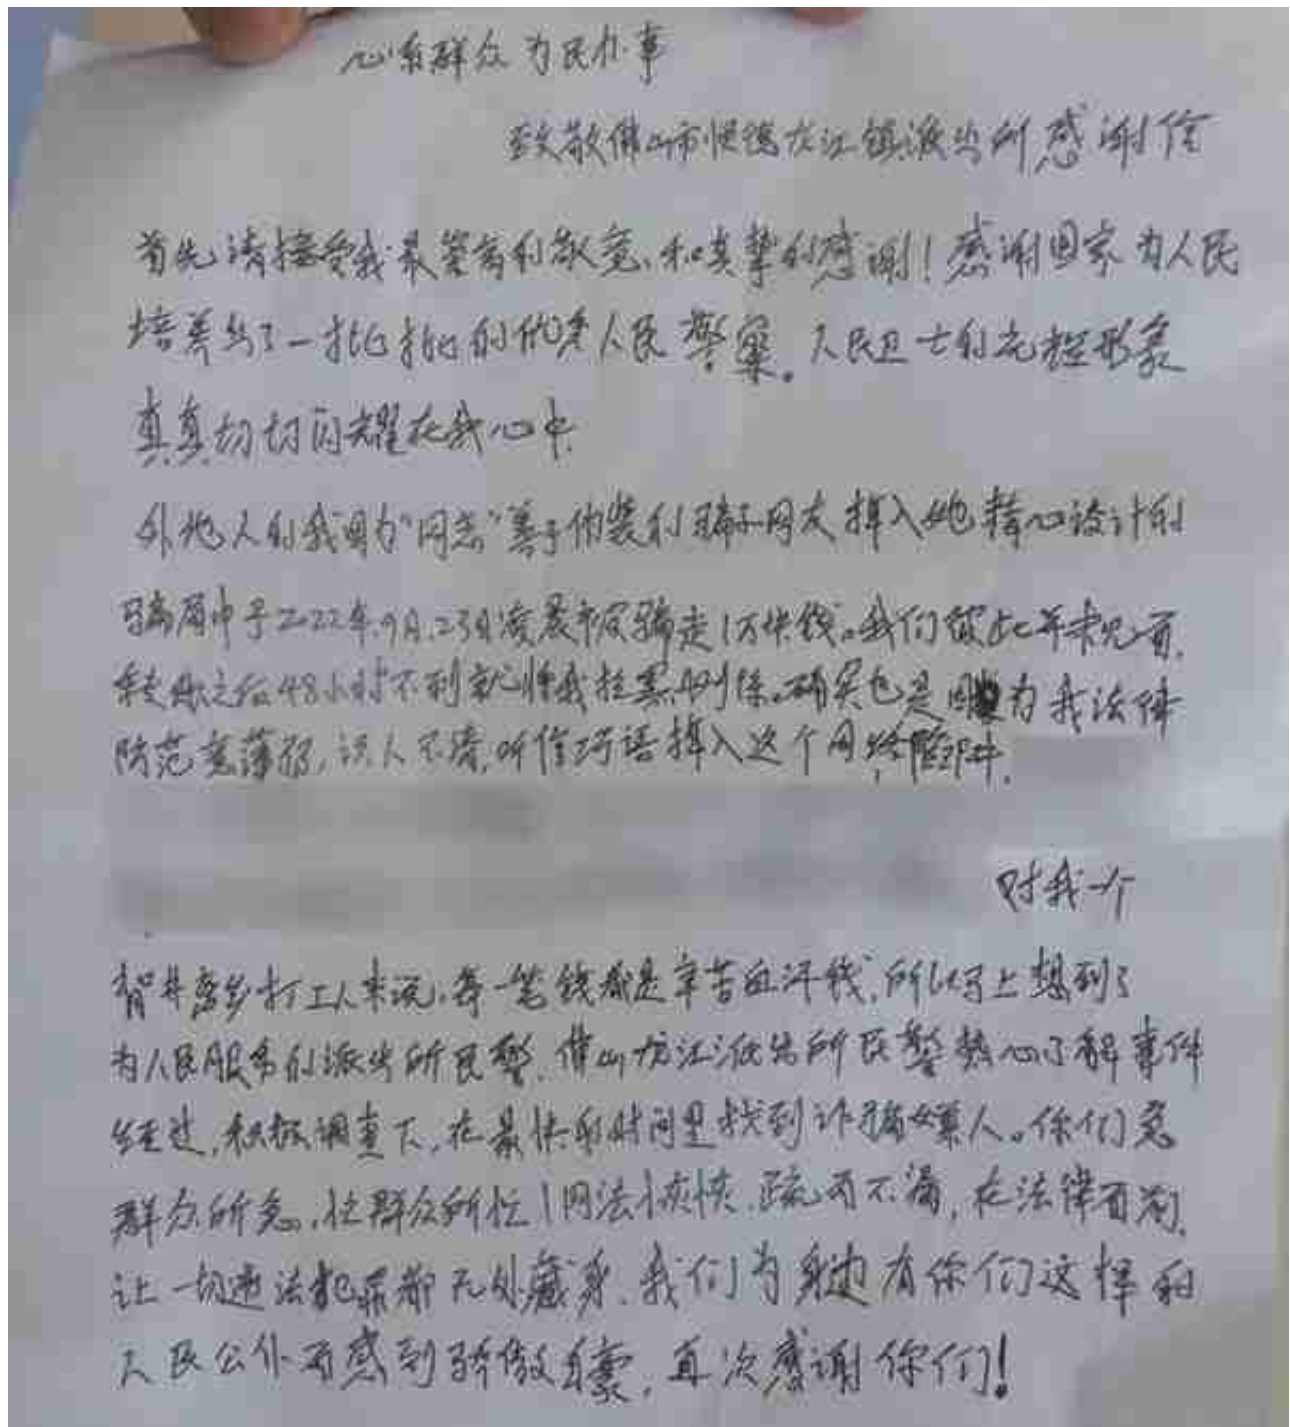 心系群众为民办事
致敬佛山市顺德龙江镇派出所感谢信
首先请接受我最崇高的敬意、和真挚的感谢！感谢国家为人民
培养出了一批批的优秀人民警察。人民卫士的光辉形象
真真切切闪耀在我心中.
外地人的我因为“网恋”善于伪装的骗子网友掉入她精心设计的
骗局中于2022年.9月.23日凌晨被骗走1万块钱。我们彼此并未见面.
转账之后48小时不到就将我拉黑删除。确实也是因为我法律
防范意薄弱,识人不清,听信巧语掉入这个网络陷阱.
对我一个
背井离乡打工人来说,每一笔钱都是辛苦血汗钱,所以马上想到了
为人民服务的派出所民警.佛山龙江派出所民警热心了解事件
经过,积极调查下,在最快的时间里找到诈骗嫌人。你们急
群众所急.忙群众所忙!网法恢恢.疏而不漏,在法律面前.
让一切违法犯罪都无处藏身.我们为身边有你们这样的
人民公仆而感到骄傲自豪,再次感谢你们!